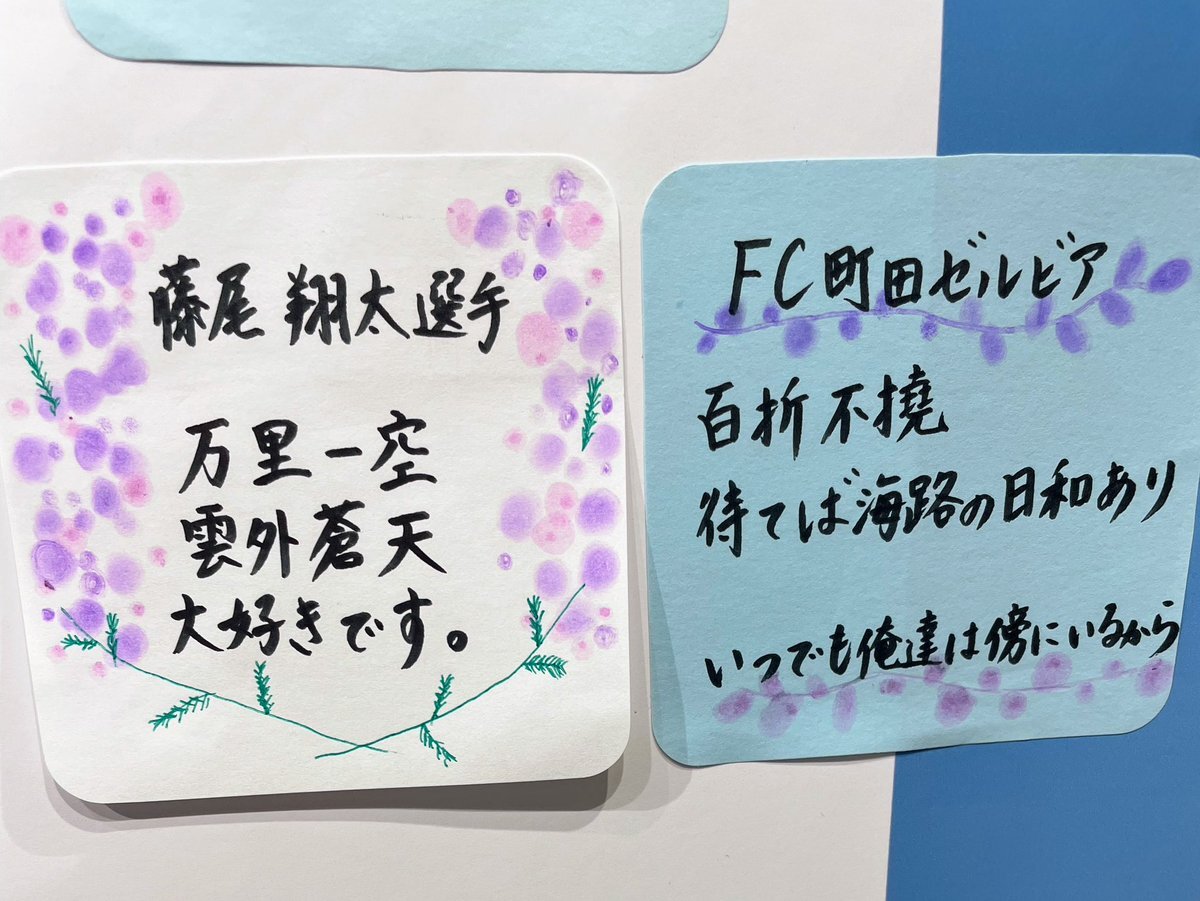 藤尾 翔太選手
万里一空
雲外蒼天
大好きです。
FC町田ゼルビア
百折不撓
待てば海路の日和あり
いつでも俺達は傍にいるから